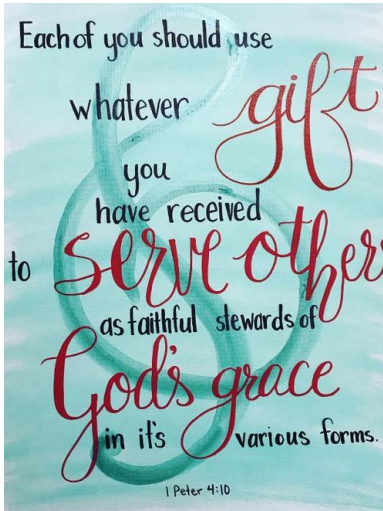 Each of you should use
whatever gift
you
have received
to serve other
as faithful stewards of
God's grace
in it's various forms.
1 Peter 4:10